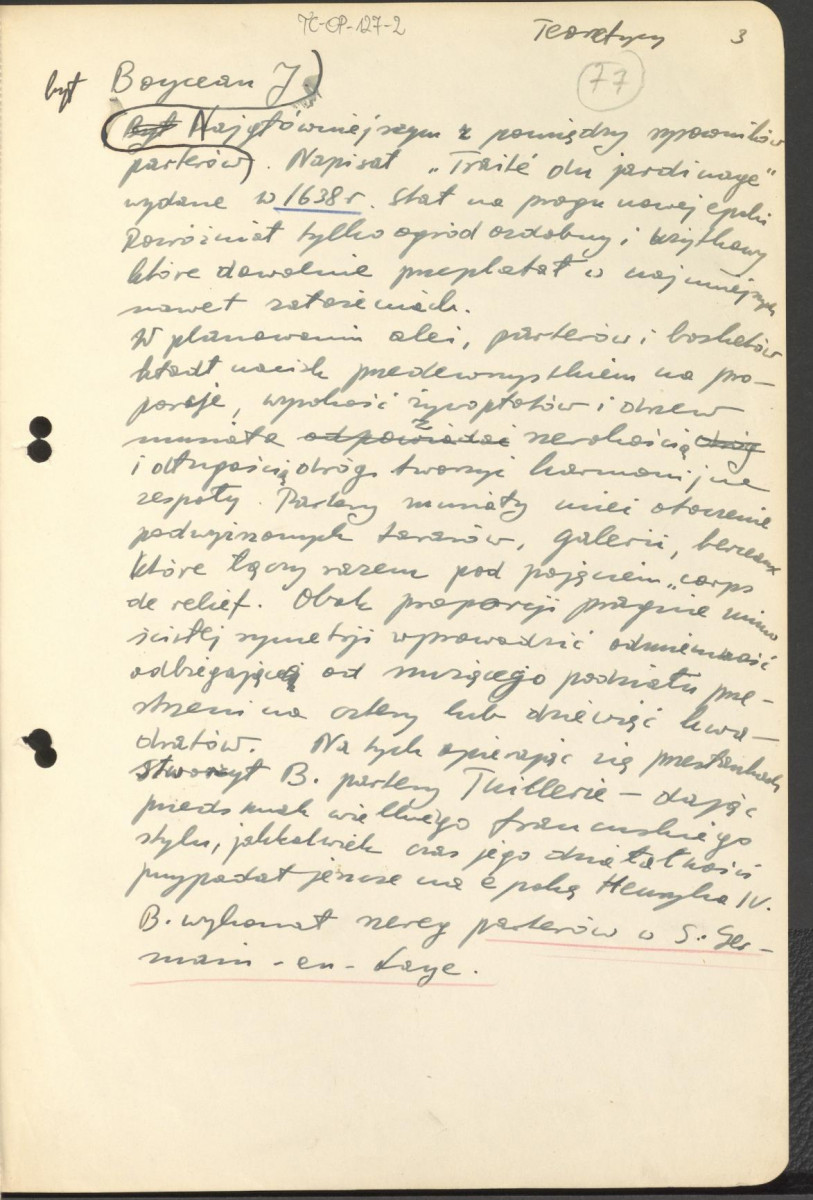 TC-OP-127-2
Teoretycy 3
77
był Boyceau J)
Był Najgłówniejszym z pomiędzy rysowników
parterów). Napisał „Traité du jardinage"
wydane w 1638 r. Stał na progu nowej epoki
Rozróżniał tylko ogród ozdobny i użytkowy
które dowolnie przeplatał w najmniejszych
nawet założeniach.
W planowaniu alei, parterów i bosketów
kładł nacisk przedewszystkiem na pro-
porcje, wysokość żywopłotów i drzew
musiała odpowiadać z szerokością dróg
i długością dróg tworzyć harmonijne
zespoły. Partery musiały mieć otoczenie
podwyższonych tarasów, galerii, berceaux
które łączy razem pod pojęciem „corps
de relief. Obok proporcji pragnie mimo
ścisłej symetrji wprowadzić odmienność
odbiegającą od nużącego podziału prze-
strzeni na cztery lub dziewięć kwa-
dratów. Na tych opierając się przesłankach
stworzył B. partery Tuillerie – dając
przedsmak wielkiego francuskiego
stylu, jakkolwiek czas jego działalności
przypadał jeszcze na epokę Henryka IV.
B. wykonał szereg parterów w S. Ger-
main - en - Laye.